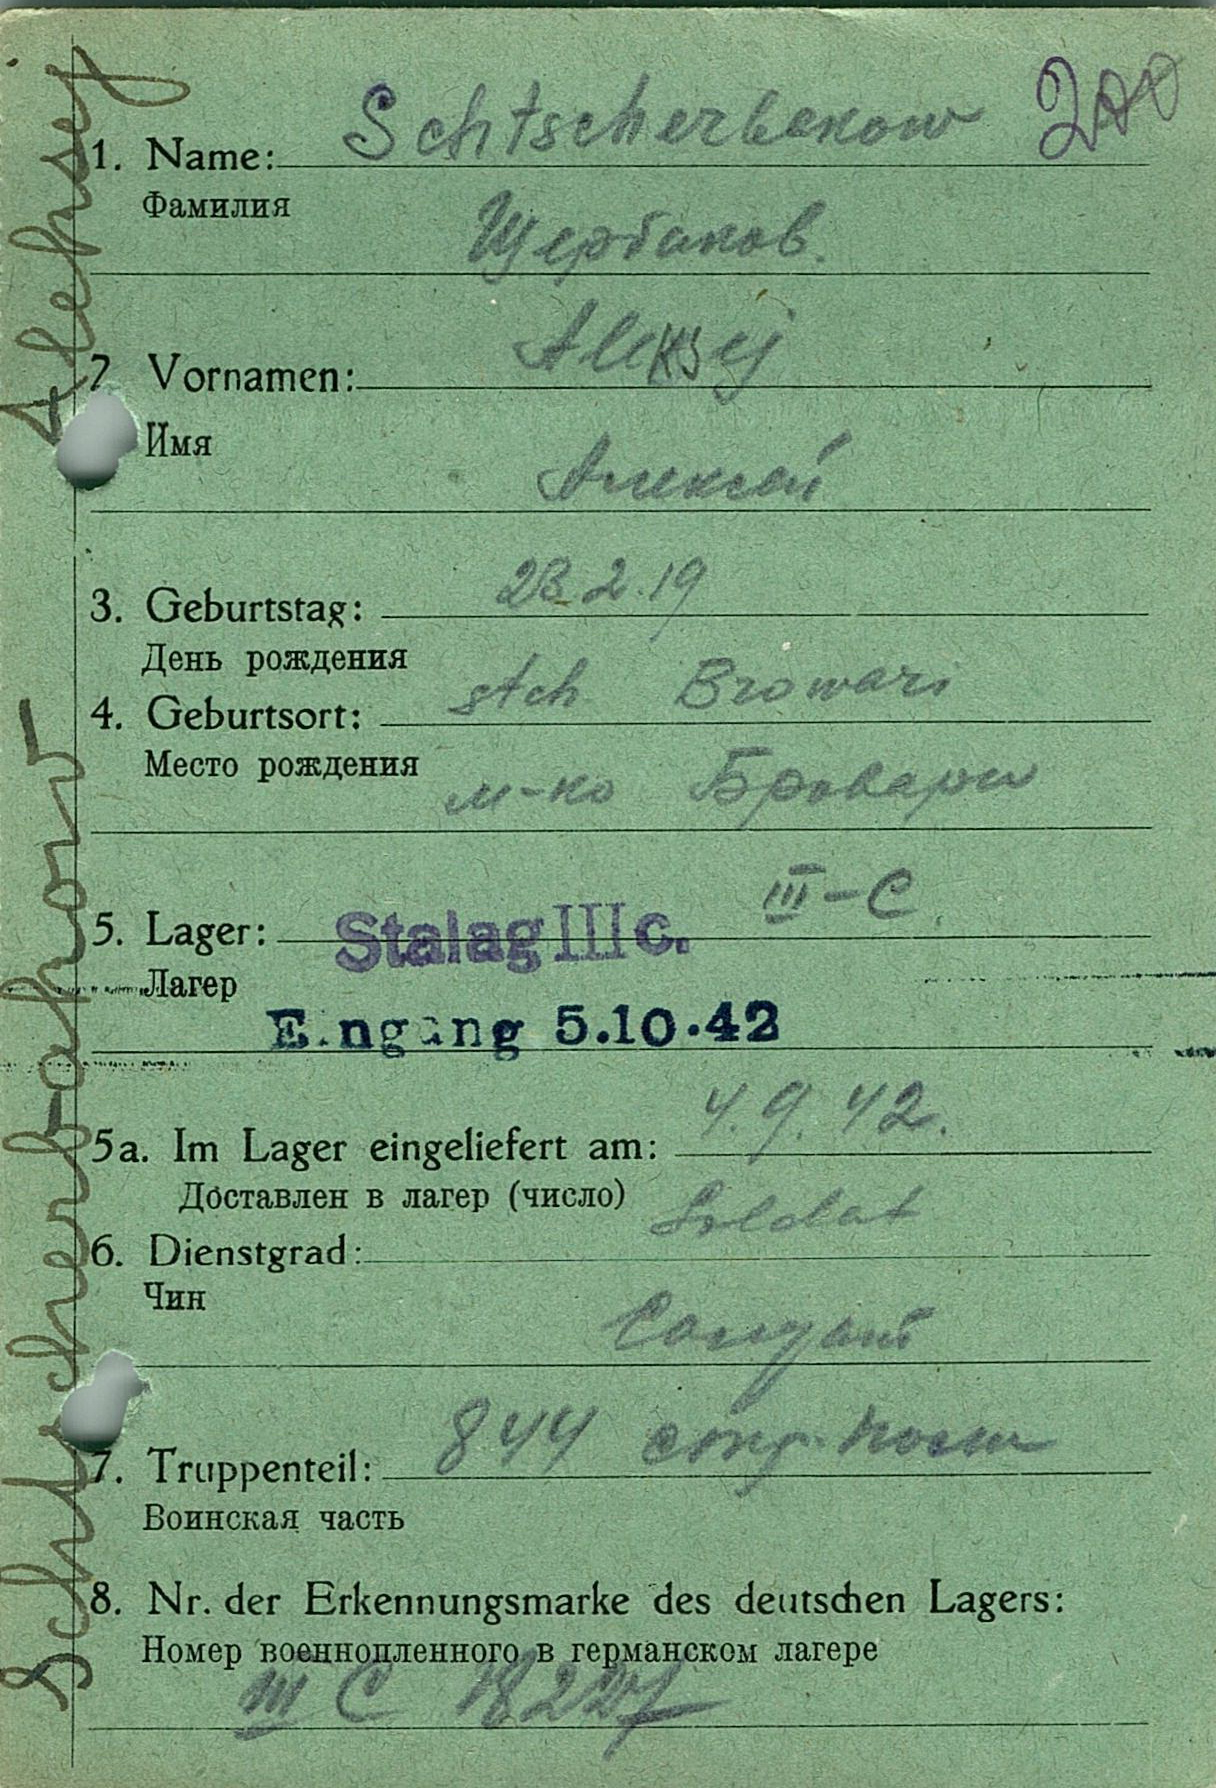 Schtscherbakow Aleksej
200
1. Name: Schtscherbakow
Фамилия
Щербаков.
2 Vornamen: Aleksej
Имя
Алексей
3. Geburtstag: 23.2.19
День рождения
4. Geburtsort: Browari
Место рождения
м-ко Бровари
III-C
5. Lager: Stalag III c.
Лагер
Eingang 5.10.42
5a. Im Lager eingeliefert am: 4.9.42.
Доставлен в лагер (число)
6. Dienstgrad: Soldat
Чин
Солдат
7. Truppenteil: 844 стр.
Воинская часть
8. Nr. der Erkennungsmarke des deutschen Lagers:
Номер военнопленного в германском лагере
III C